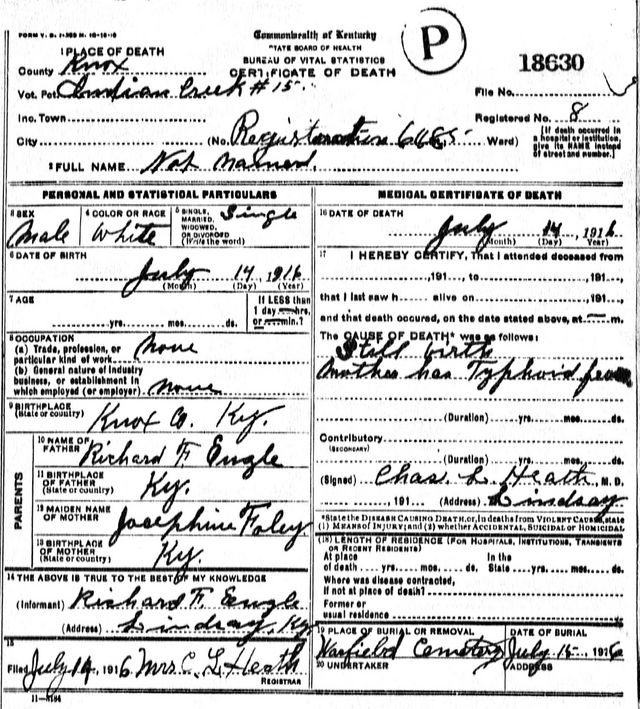 FORM V. S. 1-
Commonwealth of Kentucky
STATE BOARD OF HEALTH
BUREAU OF VITAL STATISTICS
CERTIFICATE OF DEATH
P
18630
1 PLACE OF DEATH
County Knox
Vot. Pct. Indian Creek # 15
File No.
Inc. Town
Registered No. 8
City (No. Registration 6485 Ward)
[If death occurred in a hospital or institution, give its NAME instead of street and number.]
2 FULL NAME Not named.
PERSONAL AND STATISTICAL PARTICULARS
3 SEX Male
4 COLOR OR RACE White
5 SINGLE, MARRIED, WIDOWED, OR DIVORCED (Write the word) Single
6 DATE OF BIRTH
July 14, 1916
(Month) (Day) (Year)
7 AGE
yrs. mos. ds.
If LESS than 1 day hrs. or min.?
8 OCCUPATION
(a) Trade, profession, or particular kind of work None
(b) General nature of industry business, or establishment in which employed (or employer) none
9 BIRTHPLACE
(State or country) Knox Co. Ky.
PARENTS
10 NAME OF FATHER Richard F. Engle
11 BIRTHPLACE OF FATHER (State or country) Ky.
12 MAIDEN NAME OF MOTHER Josephine Foley
13 BIRTHPLACE OF MOTHER (State or country) Ky.
14 THE ABOVE IS TRUE TO THE BEST OF MY KNOWLEDGE
(Informant) Richard F. Engle
(Address) Lindsay, Ky
15
Filed July 14, 1916 Mrs C. L. Heath
REGISTRAR
11-
MEDICAL CERTIFICATE OF DEATH
16 DATE OF DEATH
July 14 1916
(Month) (Day) (Year)
17 I HEREBY CERTIFY, That I attended deceased from
, 191 , to , 191 ,
that I last saw h alive on , 191 ,
and that death occured, on the date stated above, at m.
The CAUSE OF DEATH* was as follows:
Still birth
Mother has Typhoid fever
(Duration) yrs. mos. ds.
Contributory
(SECONDARY)
(Duration) yrs. mos. ds.
(Signed) Chas. L. Heath, M. D.
, 191 (Address) Lindsay
*State the DISEASE CAUSING DEATH, or, in deaths from VIOLENT CAUSES, state (1) MEANS OF INJURY; and (2) whether ACCIDENTAL, SUICIDAL or HOMICIDAL
(18) LENGTH OF RESIDENCE (FOR HOSPITALS, INSTITUTIONS, TRANSIENTS OR RECENT RESIDENTS)
At place of death yrs. mos. ds. In the State yrs. mos. ds.
Where was disease contracted, if not at place of death?
Former or usual residence
19 PLACE OF BURIAL OR REMOVAL
Warfield Cemetery
DATE OF BURIAL
July 15 1916
20 UNDERTAKER
ADDRESS